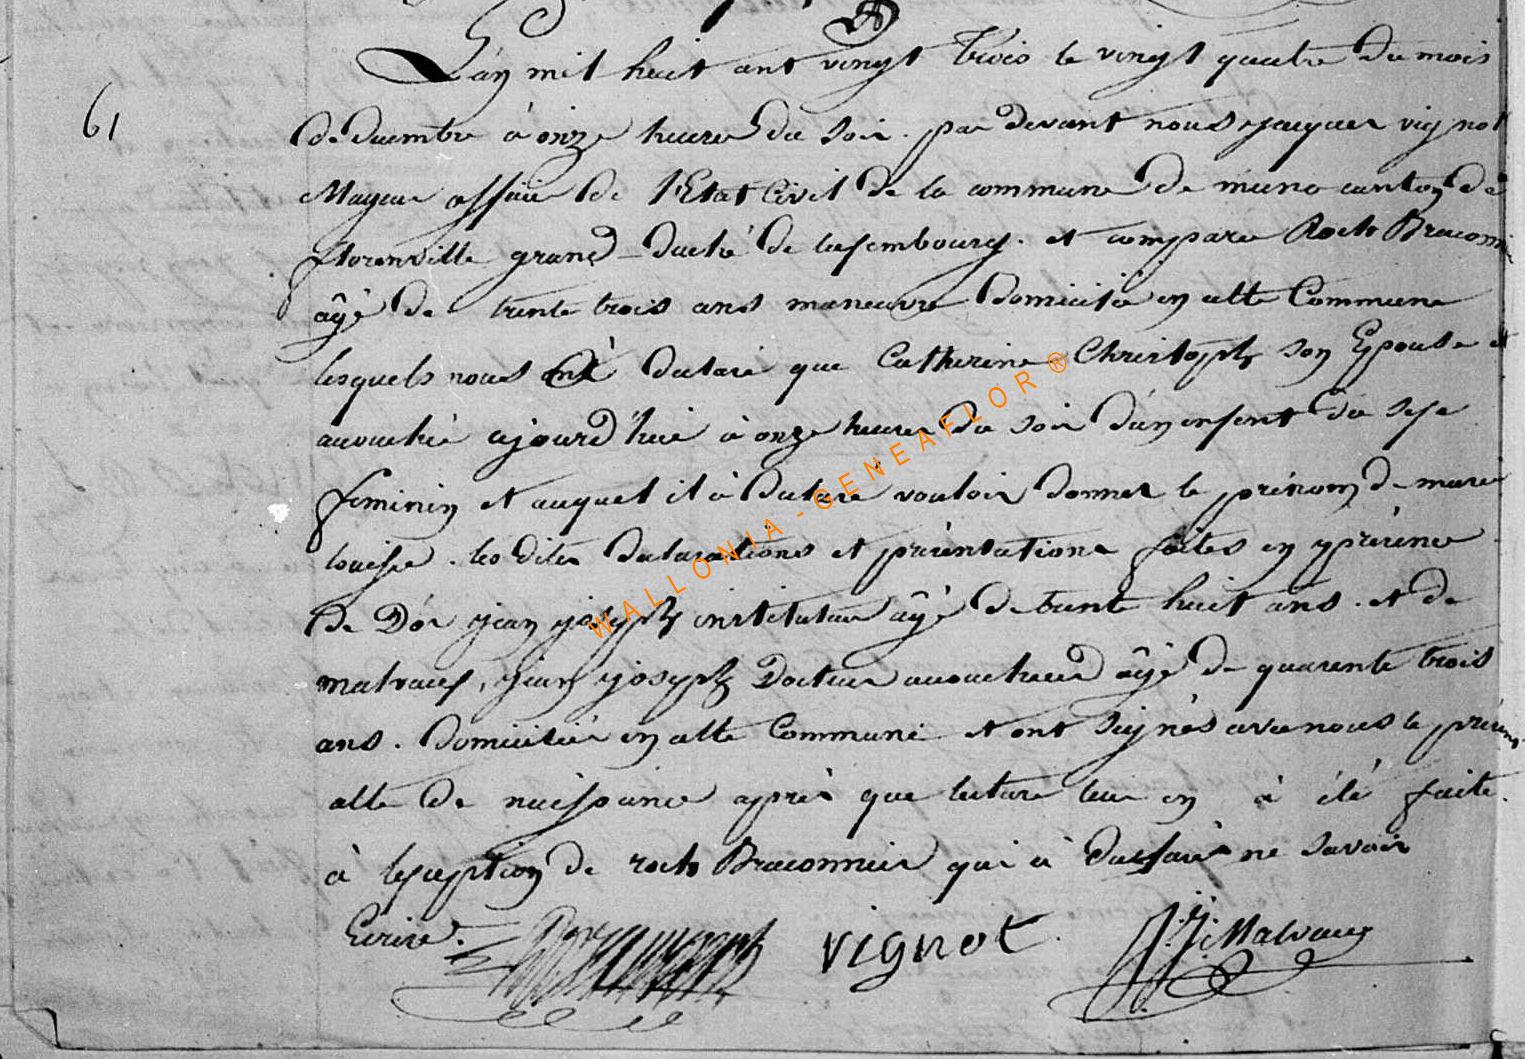 L'an mil huit cent vingt trois le vingt quatre du mois
61
de decembre à onze heures du soir. par devant nous jacques vignot
Mayeur officier de l'Etat Civil de la commune de muno canton de
florenville grand-duché de luxembourg. et comparu Roch Braconni
âgé de trente trois ans manœuvre domicilié en cette Commune
lesquels nous a declaré que Catherine Christophe son Epouse et
accouchée ajourd'hui à onze heures du soir d'un enfent du sexe
feminin et auquel il à declaré vouloir donner le prénom de marie
louise. les dites declarations et présentations faites en présence
de Dor jean joseph instituteur âgé de trente huit ans. et de
malvaux, jean joseph Docteur accoucheur âgé de quarente trois
ans. domiciliés en cette Commune et ont signés avec nous le présent
acte de naissance après que lecture leur en à été faite.
à lexception de roch Braconnier qui à declaré ne savoir
Ecrire.
vignot
J.j. Malvaux
WALLONIA-GENEAFLOR®